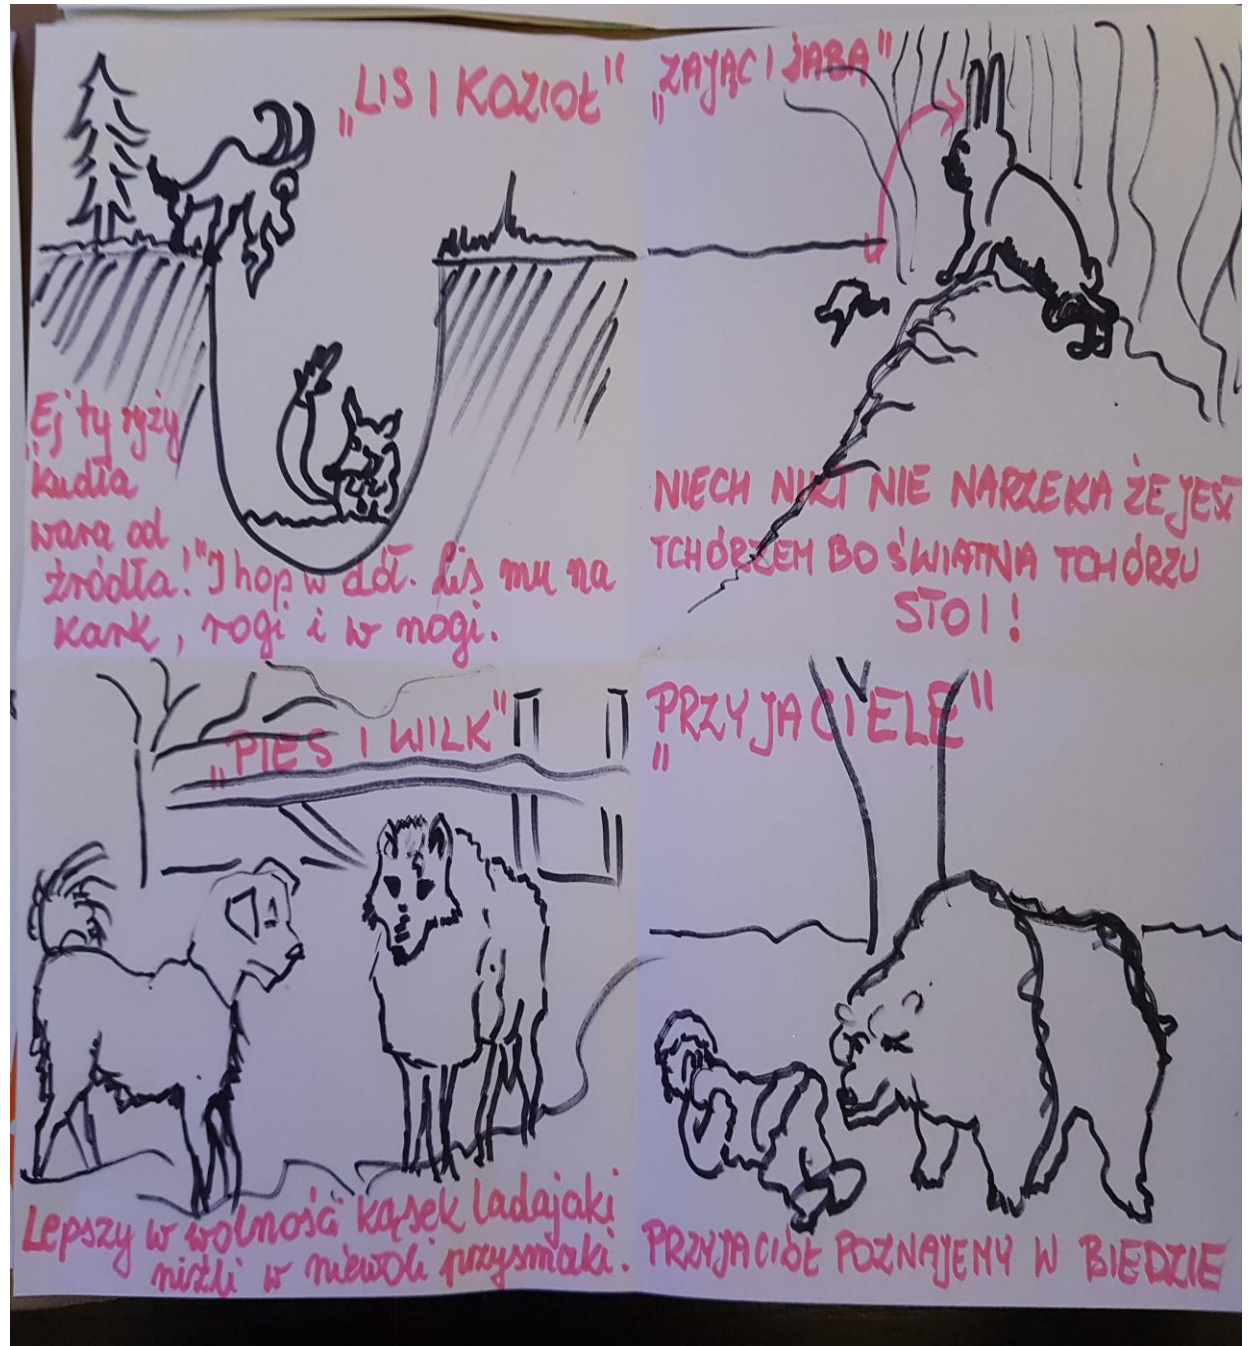 „LIS I KOZIOŁ"
„Ej ty ryży
kudła
wara od
źródła!" I hop w dół. Lis mu na
kark, rogi i w nogi.
„ZAJĄC I ŻABA"
NIECH NIKT NIE NARZEKA ŻE JEST
TCHÓRZEM BO ŚWIAT NA TCHÓRZU
STOI!
„PIES I WILK"
Lepszy w wolności kąsek ladajaki
niźli w niewoli przysmaki.
„PRZYJACIELE"
PRZYJACIÓŁ POZNAJEMY W BIEDZIE